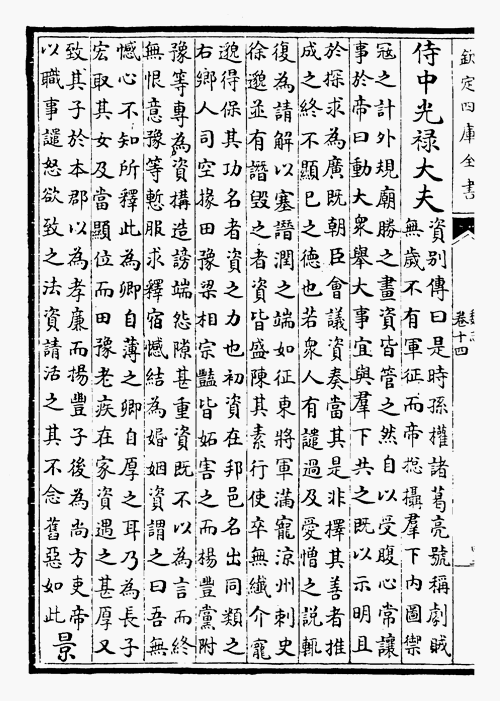 欽定四庫全書
卷十四
侍中光祿大夫
資別傳曰是時孫權諸葛亮號稱劇賊
無歲不有軍征而帝揔攝羣下内圖禦
冦之計外規廟勝之畫資皆管之然自以受腹心常讓
事於帝曰動大衆舉大事宜與羣下共之既以示明且
於探求為廣既朝臣會議資奏當其是非擇其善者推
成之終不顯已之德也若衆人有譴過及愛憎之説輒
復為請解以塞譖潤之端如征東將軍滿寵涼州刺史
徐邈並有譖毀之者資皆盛陳其素行使卒無纖介寵
邈得保其功名者資之力也初資在邦邑名出同類之
右鄉人司空掾田豫梁相宗豔皆妬害之而楊豐黨附
豫等專為資構造謗端怨隙甚重資既不以為言而終
無恨意豫等慙服求釋宿憾結為婚姻資謂之曰吾無
憾心不知所釋此為卿自薄之卿自厚之耳乃為長子
宏取其女及當顯位而田豫老疾在家資遇之甚厚又
致其子於本郡以為孝廉而楊豐子後為尚方吏帝
以職事譴怒欲致之法資請活之其不念舊惡如此
景